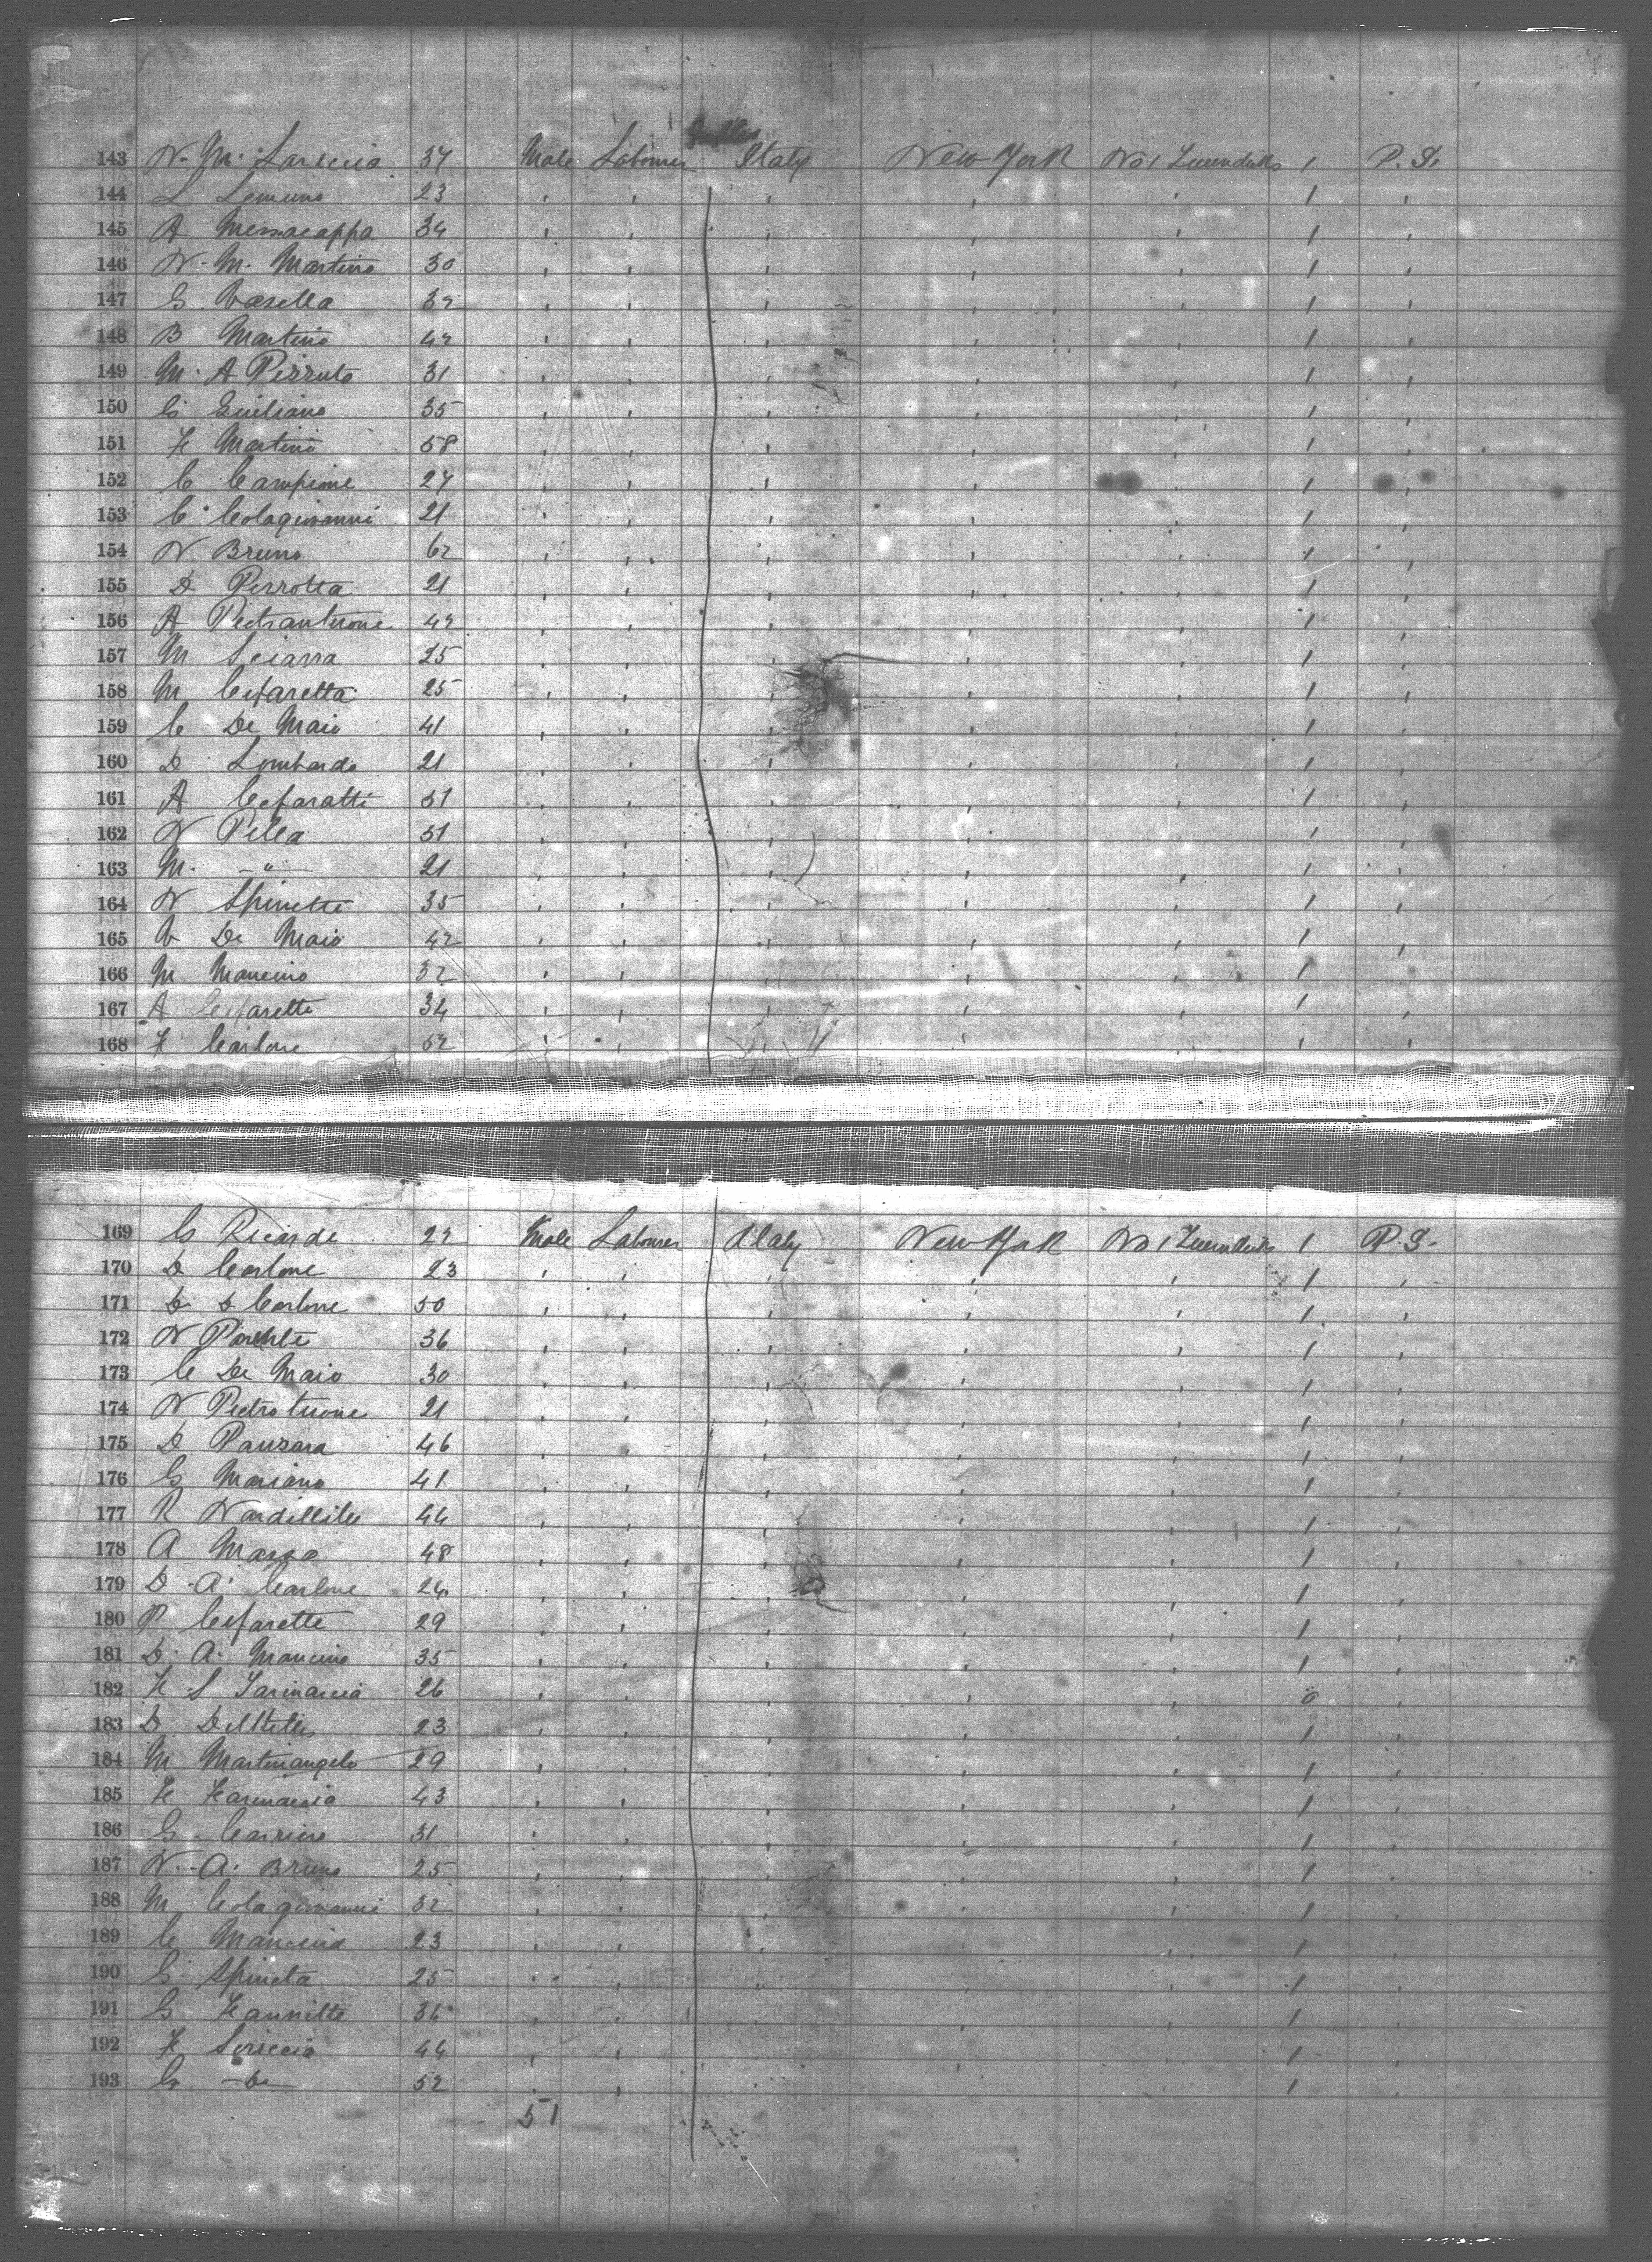 143 N. M. Sareccia 37 Male Labourer Italy New York No 1 1 P. S.
144 L Lemuno 23 ' ' ' ' ' 1 '
145 A Messacappa 34 ' ' ' ' ' 1 '
146 N. M. Martino 30 ' ' ' ' ' 1 '
147 G. Vasella 32 ' ' ' ' ' 1 '
148 B Martino 42 ' ' ' ' ' 1 '
149 M. A Pizzuto 31 ' ' ' ' ' 1 '
150 G Guiliano 35 ' ' ' ' ' 1 '
151 F Martino 58 ' ' ' ' ' 1 '
152 C Campione 27 ' ' ' ' ' 1 '
153 C. Colagiovanni 21 ' ' ' ' ' 1 '
154 N Bruno 62 ' ' ' ' ' 1 '
155 D Perrotta 21 ' ' ' ' ' 1 '
156 A Pietrantuono 42 ' ' ' ' ' 1 '
157 M Sciarra 25 ' ' ' ' ' 1 '
158 M Cefaretta 25 ' ' ' ' ' 1 '
159 C De Maio 41 ' ' ' ' ' 1 '
160 D Lombardo 21 ' ' ' ' ' 1 '
161 A Cefaratti 51 ' ' ' ' ' 1 '
162 N Pilla 51 ' ' ' ' ' 1 '
163 M. — " — 21 ' ' ' ' ' 1 '
164 N Spinetti 35 ' ' ' ' ' 1 '
165 V De Maio 42 ' ' ' ' ' 1 '
166 M Mancino 32 ' ' ' ' ' 1 '
167 A Cefaretti 34 ' ' ' ' ' 1 '
168 F Carlone 52 ' ' ' ' ' 1 '
169 G Ricarde 22 Male Labourer Italy New York No 1 1 P. S.
170 D Carlone 23 ' ' ' ' ' 1 '
171 D. D Carlone 50 ' ' ' ' ' 1 '
172 N Parente 36 ' ' ' ' ' 1 '
173 C De Maio 30 ' ' ' ' ' 1 '
174 N Pietrotuone 21 ' ' ' ' ' 1 '
175 D Panzara 46 ' ' ' ' ' 1 '
176 G Mariano 41 ' ' ' ' ' 1 '
177 R Nardillile 44 ' ' ' ' ' 1 '
178 A Masso 48 ' ' ' ' ' 1 '
179 D. A. Carlone 24 ' ' ' ' ' 1 '
180 P Cefarette 29 ' ' ' ' ' 1 '
181 D. A. Mancino 35 ' ' ' ' ' 1 '
182 F. S Farinaccia 26 ' ' ' ' ' 0 '
183 D 23 ' ' ' ' ' 1 '
184 M Martinangelo 29 ' ' ' ' ' 1 '
185 F Farinaccia 43 ' ' ' ' ' 1 '
186 G. Carriero 31 ' ' ' ' ' 1 '
187 N. A. Bruno 25 ' ' ' ' ' 1 '
188 M Colagiovanni 32 ' ' ' ' ' 1 '
189 C Mancino 23 ' ' ' ' ' 1 '
190 G Spineta 25 ' ' ' ' ' 1 '
191 G Fannitte 36 ' ' ' ' ' 1 '
192 F Sericcia 44 ' ' ' ' ' 1 '
193 G — do — 52 ' ' ' ' ' 1 '
51